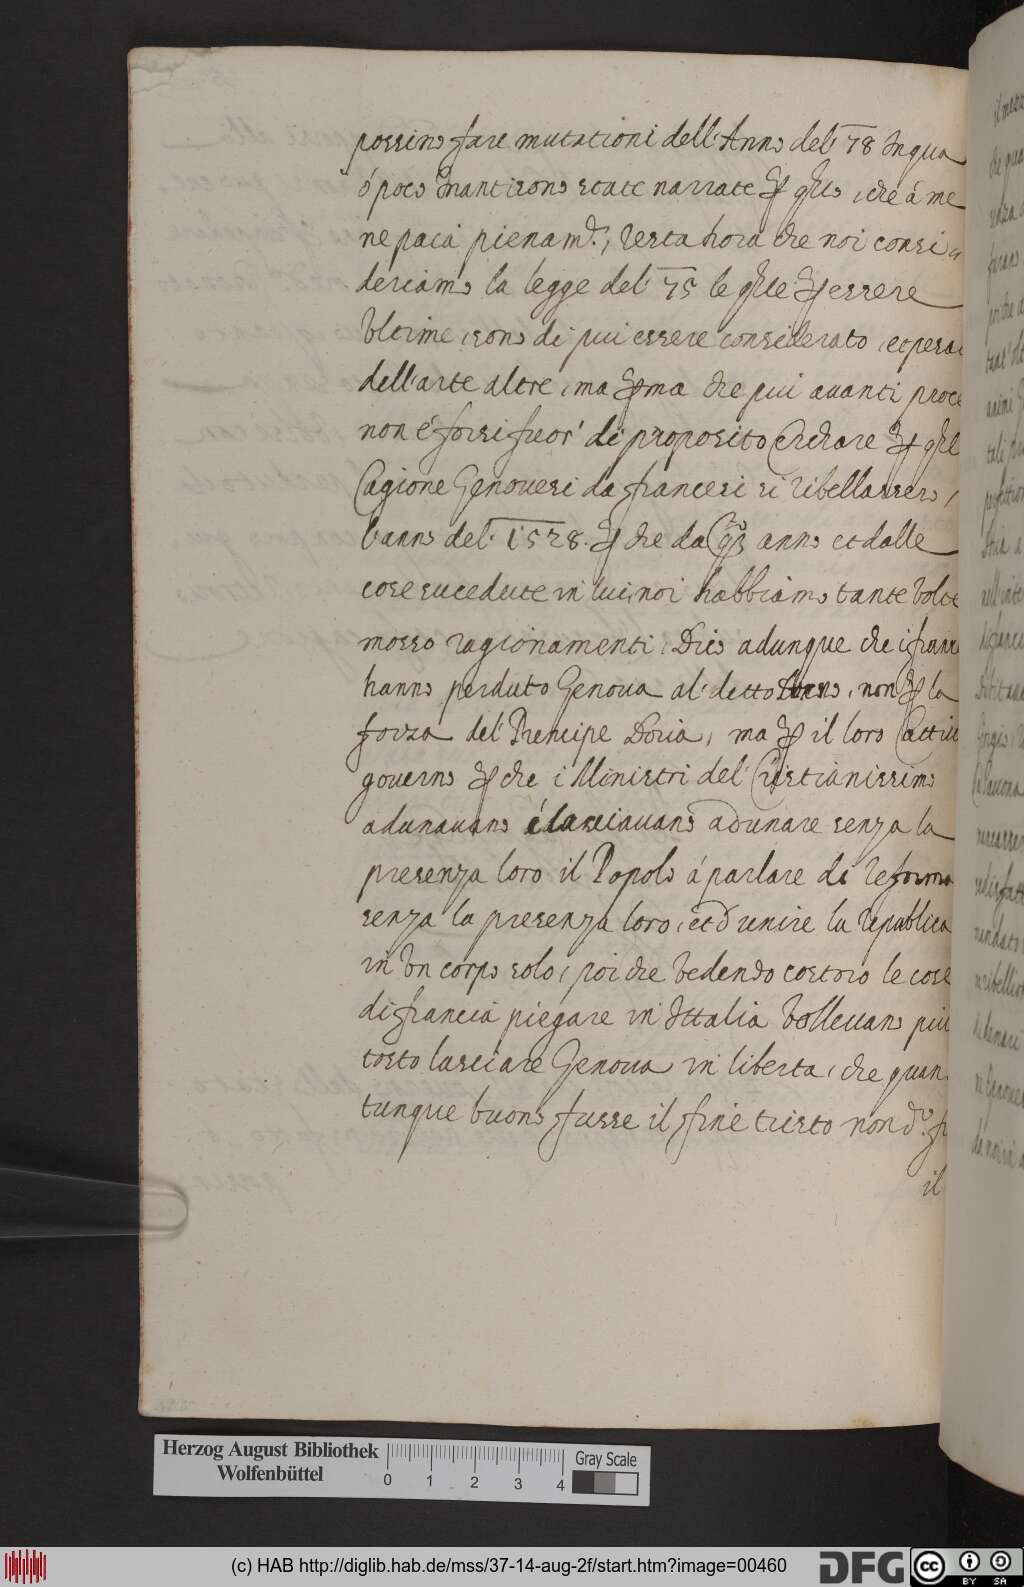 possino fare mutationi dell'Anno del' 78 In qua
ó poco inanti sono state narrate ꝑ qlls, che á me
ne pará pienamᵗᵉ, resta hora che noi consi
deriamo la legge del' 75 le qlle ꝑ essere
Vltime, sono di piu essere considerato, et pesa
dell'arte altre, ma ꝑma che piu auanti proce
non é forsi fuor' di proposito Cerchare ꝑ qlle
Cagione Genouesi da francesi si ribellassero,
l'anno del' 1528. ꝑ che da qsto anno et dalle
cose succedute in lui, noi habbiamo tante volte
mosso ragionamenti, Dico adunque che i fran
hanno perduto Genoua al' detto, non ꝑ la
forza del' Prencipe Doria, ma ꝑ il loro Cattiu
gouerno ꝑ che i Ministri del' Cristianissimo
adunauano é lasciauano adunare senza la
presenza loro il Popolo á parlare di reforma
senza la presenza loro, et d'unire la republica
in vn corpo solo, poi che vedendo costoro le cose
di francia piegare in Ittalia volleuano piu
tosto lasciare Genoua in liberta, che quan
tunque buono fusse il fine tristo non dᵒ. fu
il
Herzog August Bibliothek
Wolfenbüttel
0 1 2 3 4
Gray Scale
(c) HAB http://diglib.hab.de/mss/37-14-aug-2f/start.htm?image=00460
DFG
cc BY SA